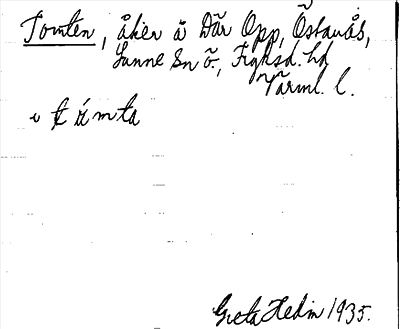 Tomten, åker å Där Opp, Östanås,
Sunne Sn ö., Fryksd. hd
Värml. l.
tómta
Greta Hedin 1935.